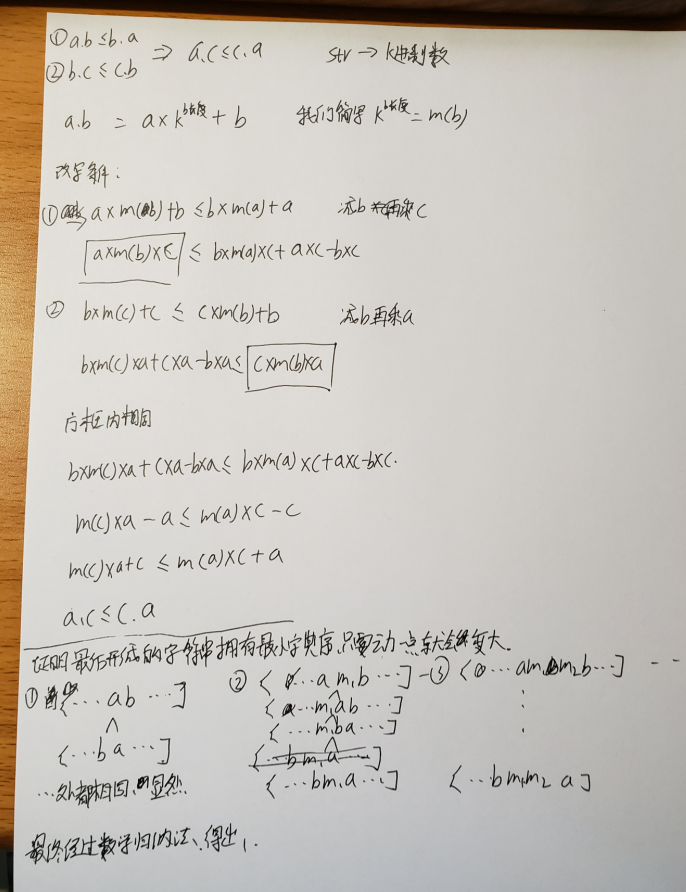 ① a.b ≤ b.a
② b.c ≤ c.b ⇒ a.c ≤ c.a str → k进制数
a.b = a × k^b长度 + b 我们简写 k^b长度 = m(b)
改写条件:
① a × m(b) + b ≤ b × m(a) + a 减b 再乘c
a×m(b)×c ≤ b×m(a)×c + a×c - b×c
② b×m(c)+c ≤ c×m(b)+b 减b再乘a
b×m(c)×a+c×a-b×a ≤ c×m(b)×a
方框内相同
b×m(c)×a+c×a-b×a ≤ b×m(a)×c+a×c-b×c.
m(c)×a - a ≤ m(a)×c - c
m(c)×a+c ≤ m(a)×c + a
a.c ≤ c.a
证明最后形成的字符串拥有最小字典序,只要动一点就会变大.
① [... ab ...] ② [...a m₁b ...] - ③ [...am₁m₂b...] ...
∧ [...m₁ab ...]
[...ba ...] [...m₁ba ...]
...处都相同,显然. [...bm₁a ...] [...bm₁m₂ a]
最终经过数学归纳法、得出,.